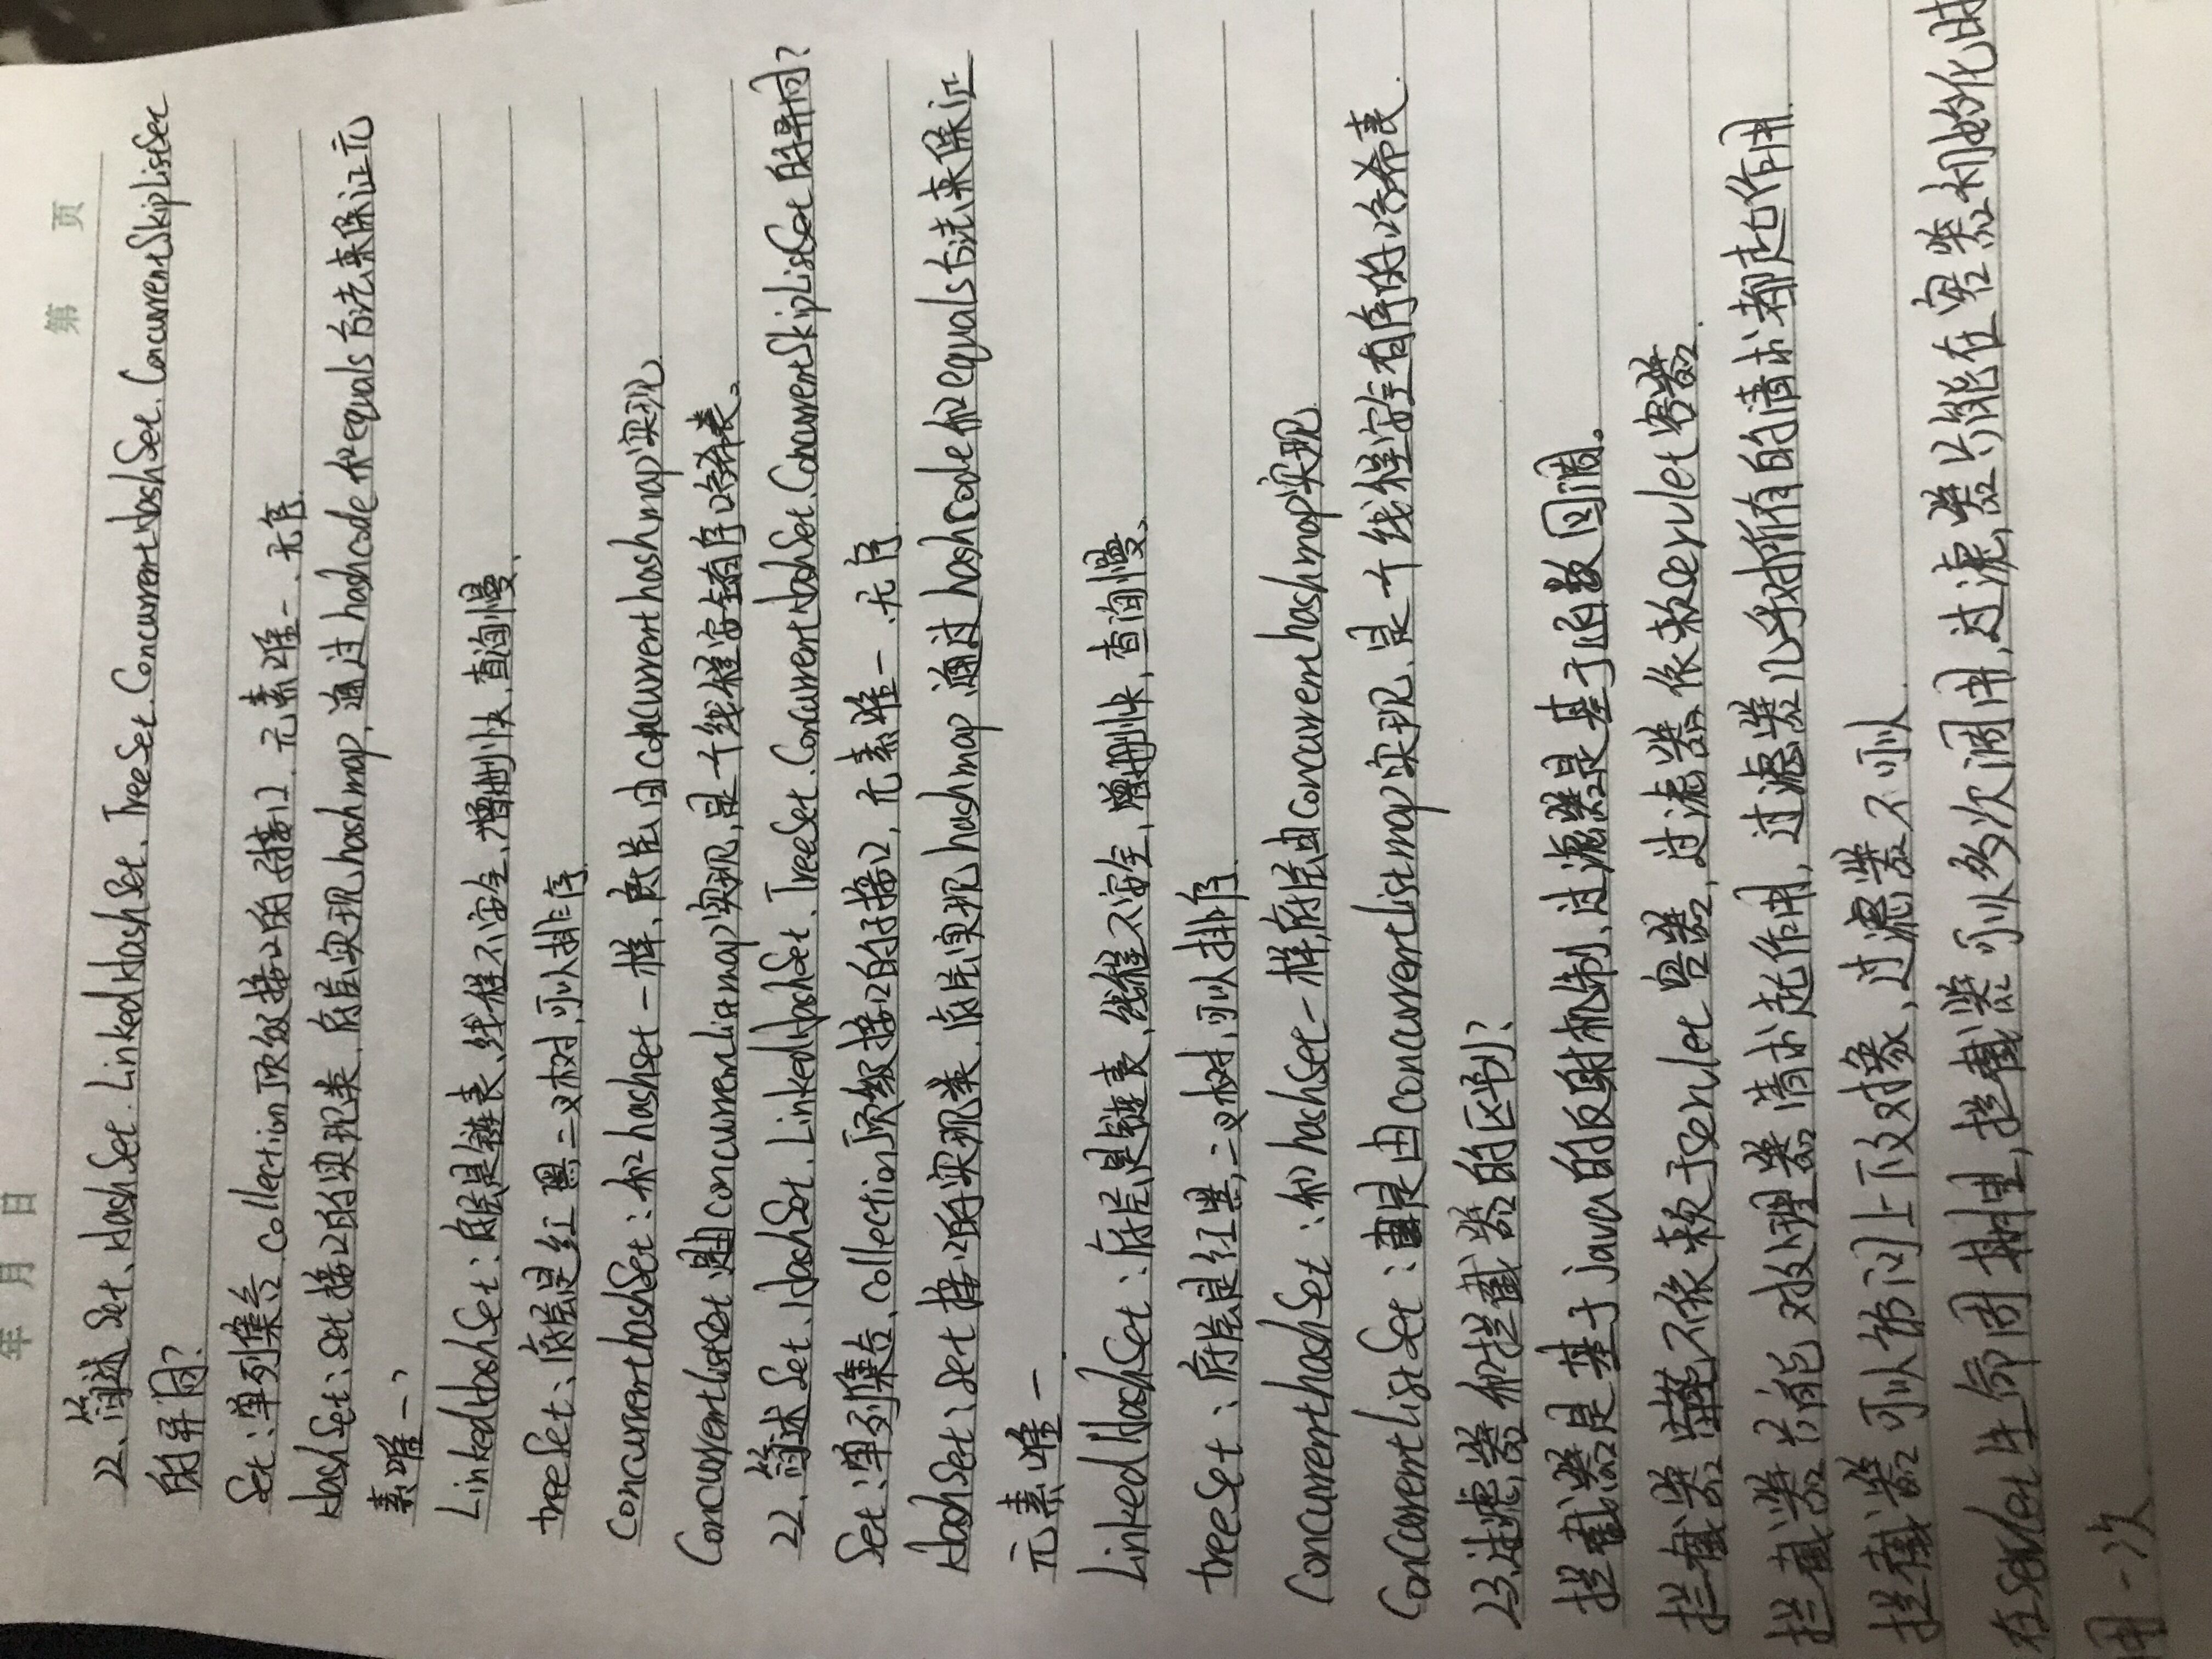 年 月 日
第 页
22、简述 Set、HashSet、LinkedHashSet、TreeSet、ConcurrentHashSet、ConcurrentSkipListSet
的异同?
Set:单列集合 collection顶级接口的子接口、元素唯一、无序
HashSet:set接口的实现类、底层实现hashmap,通过hashcode和equals方法来保证元
素唯一,
LinkedHashSet:底层是链表、线程不安全、增删快、查询慢、
treeSet:底层是红黑二叉树,可以排序
ConcurrenthashSet:和hashset一样、底层由concurrenthashmap实现
ConcurrentlistSet是由concurrenlistmap实现,是一个线程安全有序哈希表。
22、简述 Set、HashSet、LinkedHashSet、TreeSet、ConcurrentHashSet、ConcurrentSkipListSet 的异同?
Set:单列集合、collection顶级接口的子接口,元素唯一、无序
HashSet:set接口的实现类、底层实现hashmap、通过hashcode和equals方法来保证
元素唯一、
LinkedHashSet:底层是链表、线程不安全,增删快,查询慢、
treeSet:底层是红黑,二叉树,可以排序
ConcurrenthashSet:和hashSet一样,底层由concurrenhashmap实现
ConcurrentListSet:是由concurrentlistmap实现、是一个线程安全有序的哈希表
23、过滤器和拦截器的区别?
拦截器是基于java的反射机制、过滤器是基于函数回调。
拦截器不依赖于servlet容器,过滤器依赖servlet容器
拦截器只能对处理器请求起作用,过滤器几乎对所有的请求都起作用
拦截器可以访问上下文对象,过滤器不可以
在servlet生命周期里,拦截器可以多次调用,过滤器只能在容器初始化时
用一次